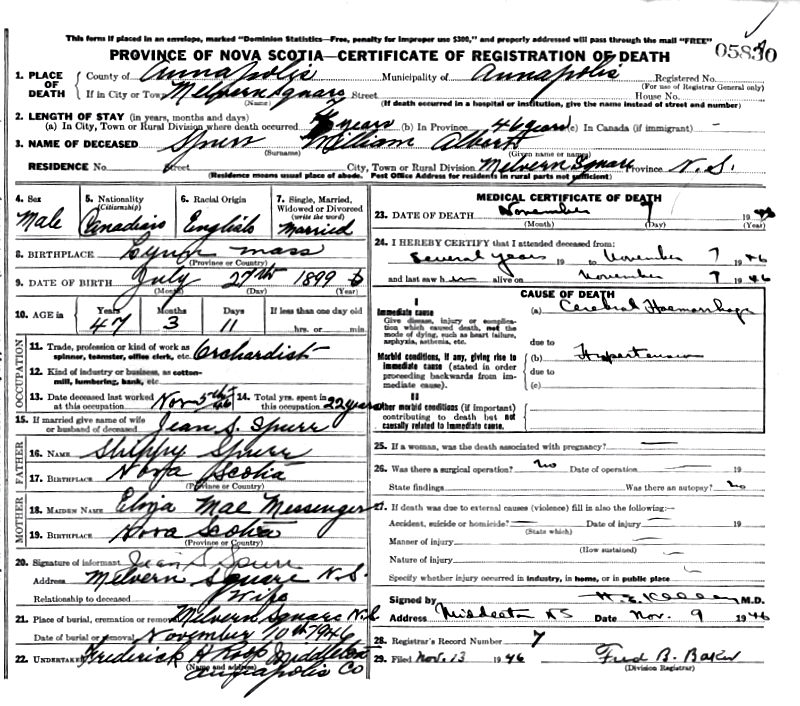 This form if placed in an envelope, marked "Dominion Statistics—Free, penalty for improper use $300," and properly addressed will pass through the mail "FREE"
PROVINCE OF NOVA SCOTIA—CERTIFICATE OF REGISTRATION OF DEATH
1. PLACE OF DEATH
County of Annapolis Municipality of Annapolis Registered No.
(For use of Registrar General only)
If in City or Town Melvern Square Street House No.
(Name) (If death occurred in a hospital or institution, give the name instead of street and number)
2. LENGTH OF STAY (in years, months and days)
(a) In City, Town or Rural Division where death occurred years (b) In Province 46 years (c) In Canada (if immigrant) —
3. NAME OF DECEASED Spurr William Albert
(Surname) (Given name or names)
RESIDENCE No. Street City, Town or Rural Division Melvern Square Province N.S.
(Residence means usual place of abode. Post Office Address for residents in rural parts not sufficient)
4. Sex
Male
5. Nationality
(Citizenship)
Canadian
6. Racial Origin
English
7. Single, Married, Widowed or Divorced
(write the word)
Married
8. BIRTHPLACE Lynn Mass
(Province or Country)
9. DATE OF BIRTH July 27th 1899
(Month) (Day) (Year)
10. AGE in
Years Months Days If less than one day old
47 3 11 hrs. or min.
OCCUPATION
11. Trade, profession or kind of work as Orchardist
spinner, teamster, office clerk, etc.
12. Kind of industry or business, as cotton-
mill, lumbering, bank, etc
13. Date deceased last worked at this occupation Nov 5th 46 14. Total yrs. spent in this occupation 22 years
15. If married give name of wife or husband of deceased Jean S. Spurr
FATHER
16. NAME Shippy Spurr
17. BIRTHPLACE Nova Scotia
(Province or Country)
MOTHER
18. MAIDEN NAME Eloja Mae Messenger
19. BIRTHPLACE Nova Scotia
(Province or Country)
20. Signature of informant Jean S Spurr
Address Melvern Square N.S.
Relationship to deceased Wife
21. Place of burial, cremation or removal Melvern Square N.S.
Date of burial or removal November 10th 1946
22. UNDERTAKER Frederick Roop Middleton
(Name and address)
Annapolis Co
MEDICAL CERTIFICATE OF DEATH
23. DATE OF DEATH November 7 1946
(Month) (Day) (Year)
24. I HEREBY CERTIFY that I attended deceased from:
Several years 19 to November 7 1946
and last saw him alive on November 7 1946
CAUSE OF DEATH
I
Immediate cause
Give disease, injury or complication which caused death, not the mode of dying, such as heart failure, asphyxia, asthenia, etc.
(a) Cerebral Haemorrhage
due to
Morbid conditions, if any, giving rise to immediate cause (stated in order proceeding backwards from immediate cause).
(b) Hypertension
due to
(c)
II
Other morbid conditions (if important) contributing to death but not causally related to immediate cause.
25. If a woman, was the death associated with pregnancy? —
26. Was there a surgical operation? no Date of operation — 19
State findings Was there an autopsy? no
27. If death was due to external causes (violence) fill in also the following:—
Accident, suicide or homicide? — Date of injury — 19
(State which)
Manner of injury
(How sustained)
Nature of injury
Specify whether injury occurred in industry, in home, or in public place
Signed by M.D.
Address Middleton NS Date Nov. 9 1946
28. Registrar's Record Number 7
29. Filed Nov. 13 1946 Fred B. Baker
(Division Registrar)